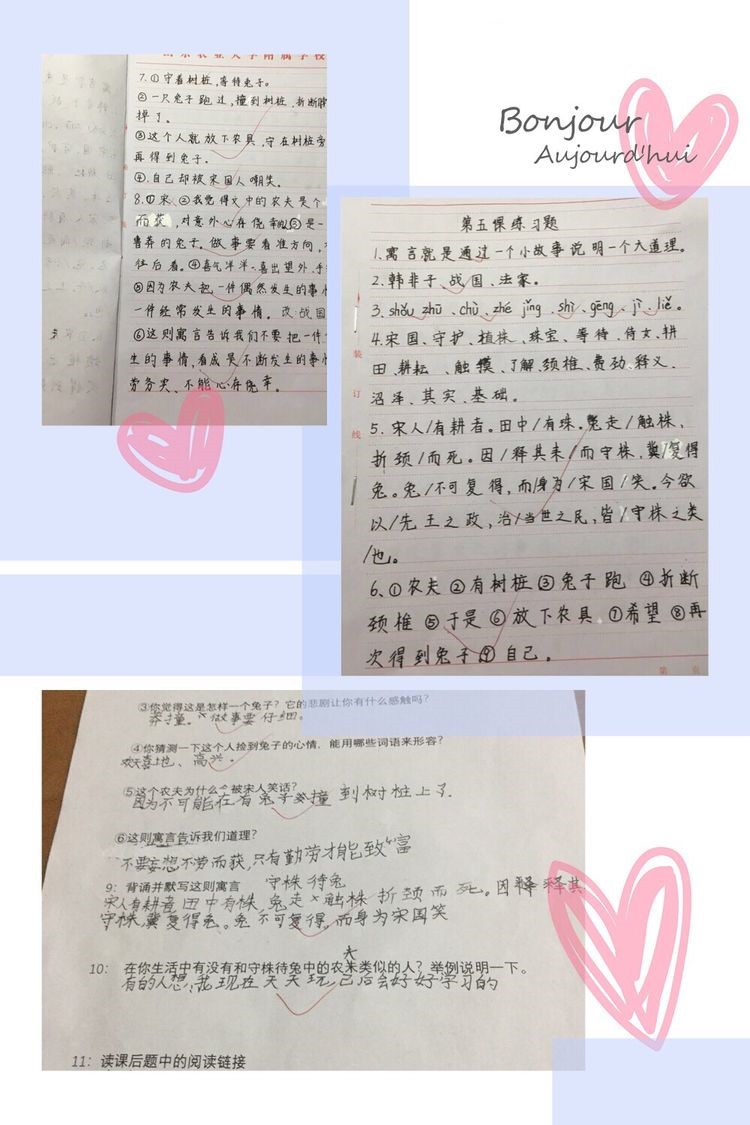 Bonjour
Aujourd'hui
7.①守着树桩,等待兔子。
②一只兔子跑过,撞到树桩,折断脖
掉了。
③这个人就放下农具,守在树桩旁
再得到兔子。
④.自己却被宋国人嘲笑。
8.①宋②我觉得文中的农夫是个
而获,对意外心存侥幸③是一
鲁莽的兔子。做事要看准方向,
往后看。④喜气洋洋、喜出望外、手
⑤因为农夫把一件偶然发生的事情
一件经常发生的事情。改:战国
⑥这则寓言告诉我们不要把一件
生的事情,看成是不断发生的事情
劳务实、不能心存侥幸。
第五课练习题
1.寓言就是通过一个小故事说明一个大道理。
2.韩非子、战国、法家。
3.shǒu zhū、chù、zhé jǐng、shì、gēng、jì、liě。
4.宋国、守护、植株、珠宝、等待、侍女、耕
田、耕耘、触摸、了解、颈椎、费劲、释义、
沼泽、其实、基础。
5.宋人/有耕者。田中/有株。兔走/触株,
折颈/而死。因/释其耒/而守株,冀/复得
兔。兔/不可复得,而/身为/宋国/笑。今欲
以/先王之政,治/当世之民,皆/守株之类
/也。
6、①农夫②有树桩③兔子跑④折断
颈椎⑤于是⑥放下农具⑦希望⑧再
次得到兔子⑨自己。
第 页
装
订
线
③你觉得这是怎样一个兔子?它的悲剧让你有什么感触吗?
莽撞。做事要仔细。
④你猜测一下这个人捡到兔子的心情,能用哪些词语来形容?
欢天喜地、高兴。
⑤这个农夫为什么会被宋人笑话?
因为不可能在有兔子会撞到树桩上了.
⑥这则寓言告诉我们道理?
不要妄想不劳而获,只有勤劳才能致富
9:背诵并默写这则寓言 守株待兔
宋人有耕者田中有株,兔走触株折颈而死。因释其
守株,冀复得兔。兔不可复得,而身为宋国笑
10:在你生活中有没有和守株待兔中的农夫类似的人?举例说明一下。
有的人想,我现在天天玩,已后会好好学习的
11:读课后题中的阅读链接